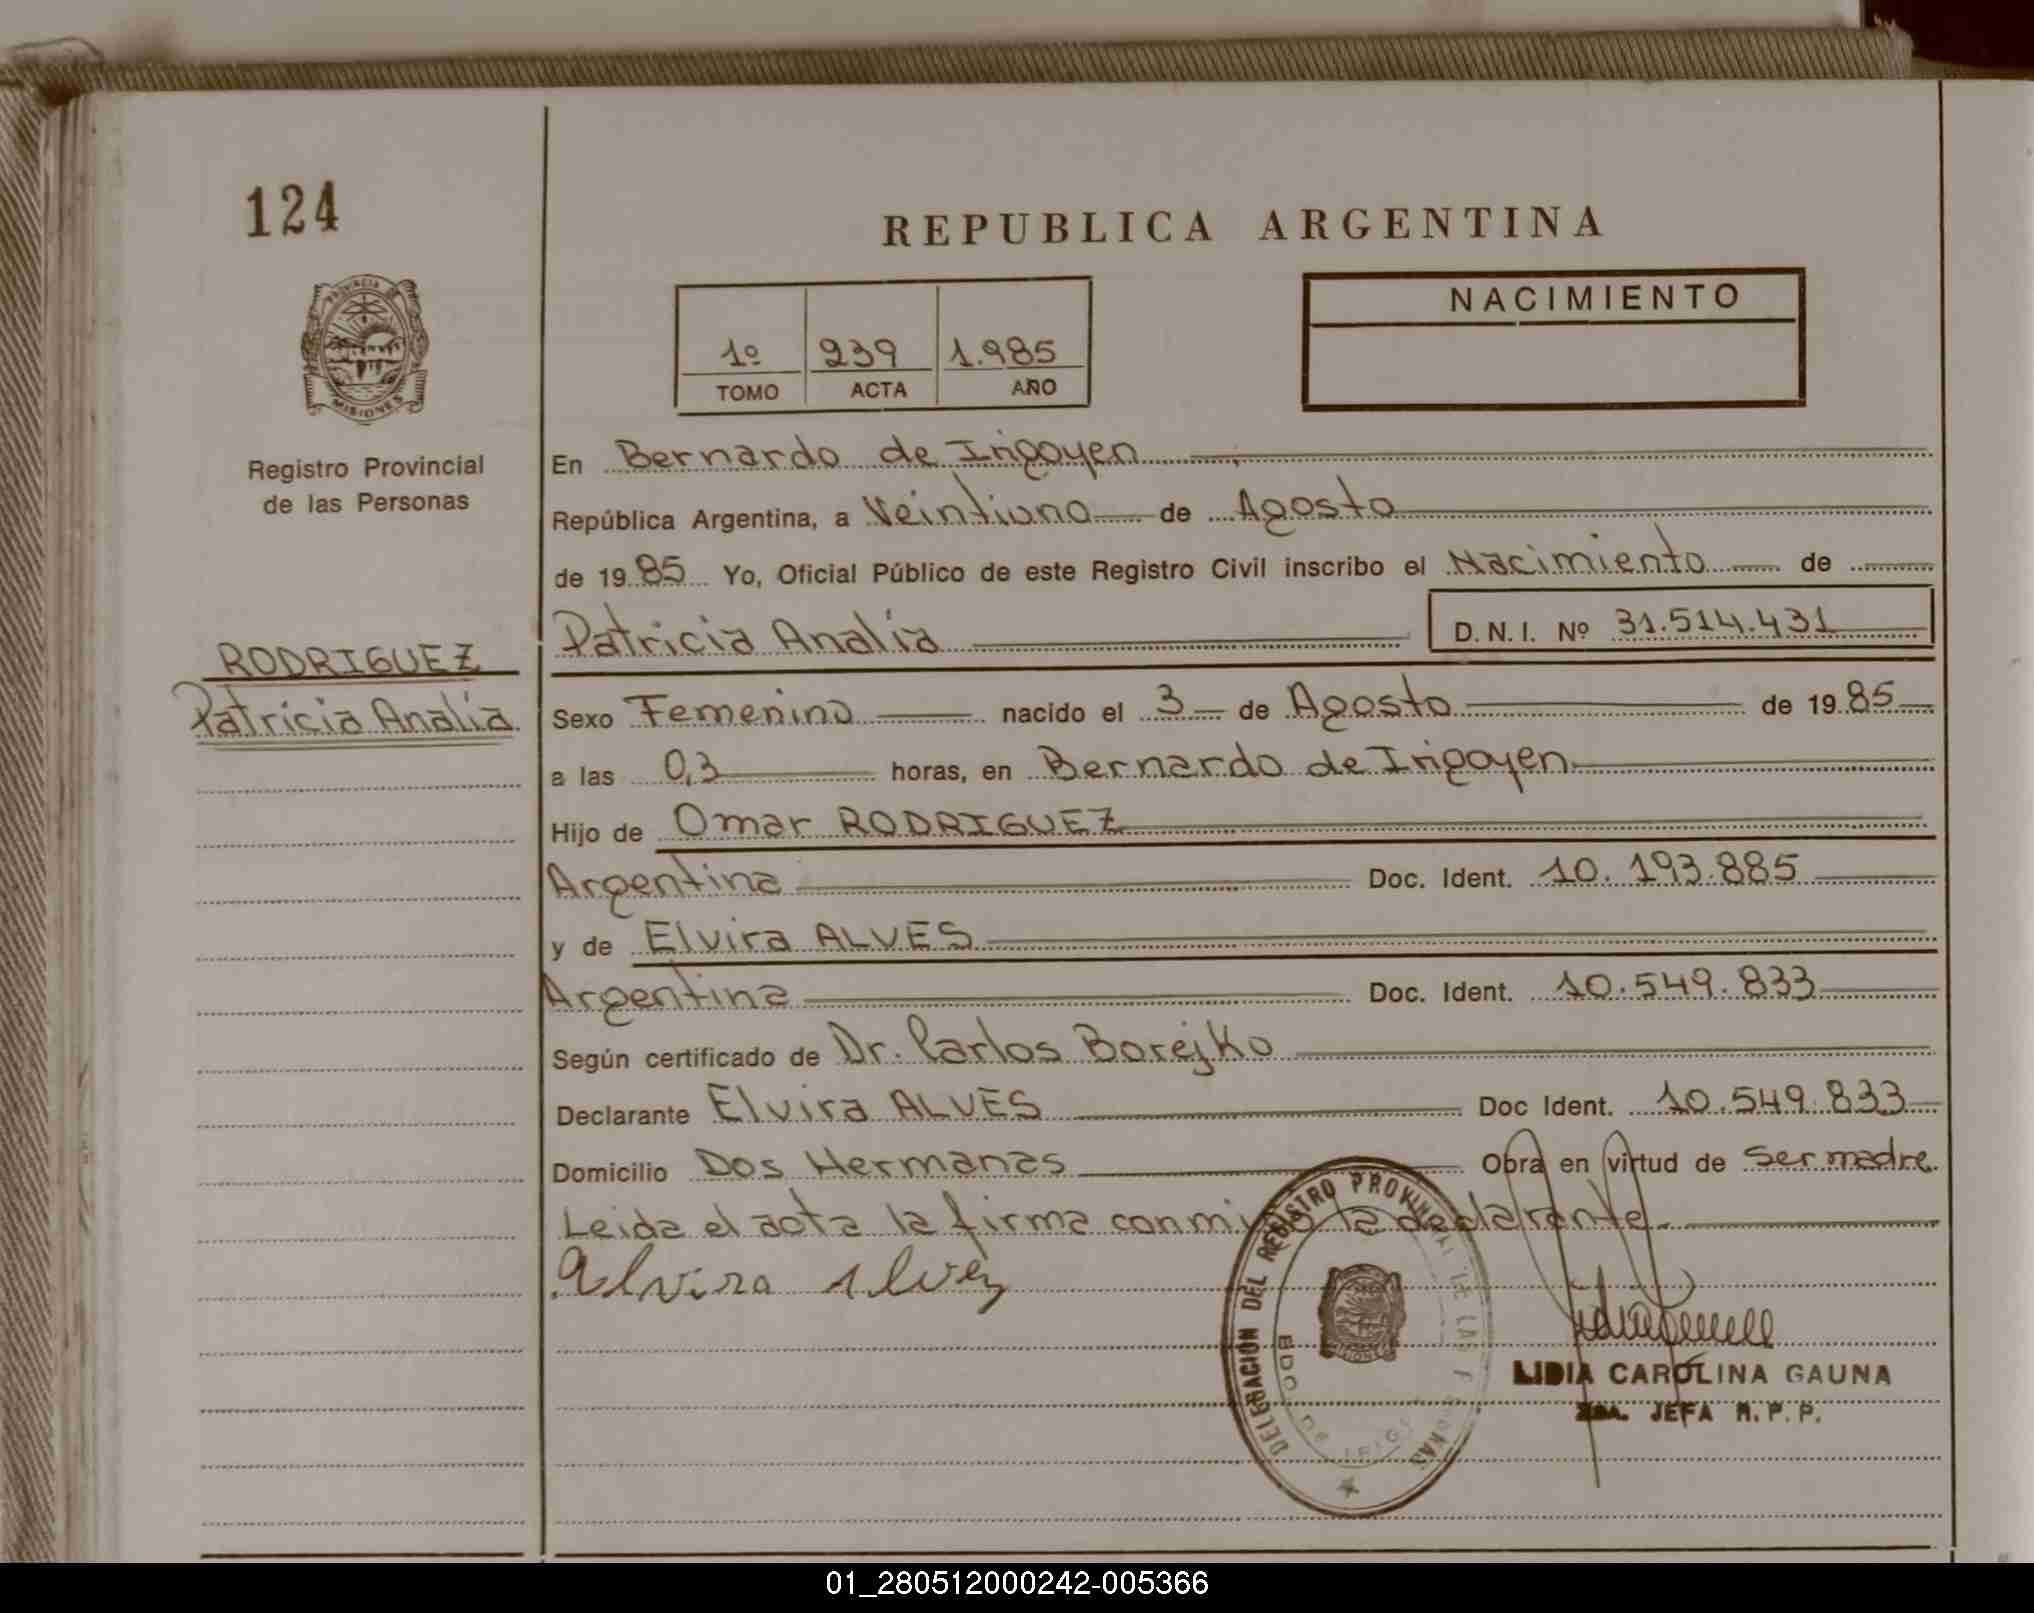 124
REPUBLICA ARGENTINA
PROVINCIA DE
MISIONES
NACIMIENTO
1º 239 1.985
TOMO ACTA AÑO
Registro Provincial
de las Personas
En Bernardo de Irigoyen
República Argentina, a Veintiuno de Agosto
de 1985 Yo, Oficial Público de este Registro Civil inscribo el Nacimiento de
Patricia Analía D.N.I. Nº 31.514.431
RODRIGUEZ
Patricia Analía
Sexo Femenino nacido el 3 de Agosto de 1985
a las 0,3 horas, en Bernardo de Irigoyen
Hijo de Omar RODRIGUEZ
Argentina Doc. Ident. 10.193.885
y de Elvira ALVES
Argentina Doc. Ident. 10.549.833
Según certificado de Dr. Carlos Borejko
Declarante Elvira ALVES Doc Ident. 10.549.833
Domicilio Dos Hermanas Obra en virtud de Ser madre
Leida el acta la firma conmigo la declarante
elvira alvez
DELEGACION DEL REGISTRO PROVINCIAL DE LAS PERSONAS
BDO. DE IRIGOYEN
MISIONES
LIDIA CAROLINA GAUNA
JEFA R.P.P.
01_280512000242-005366